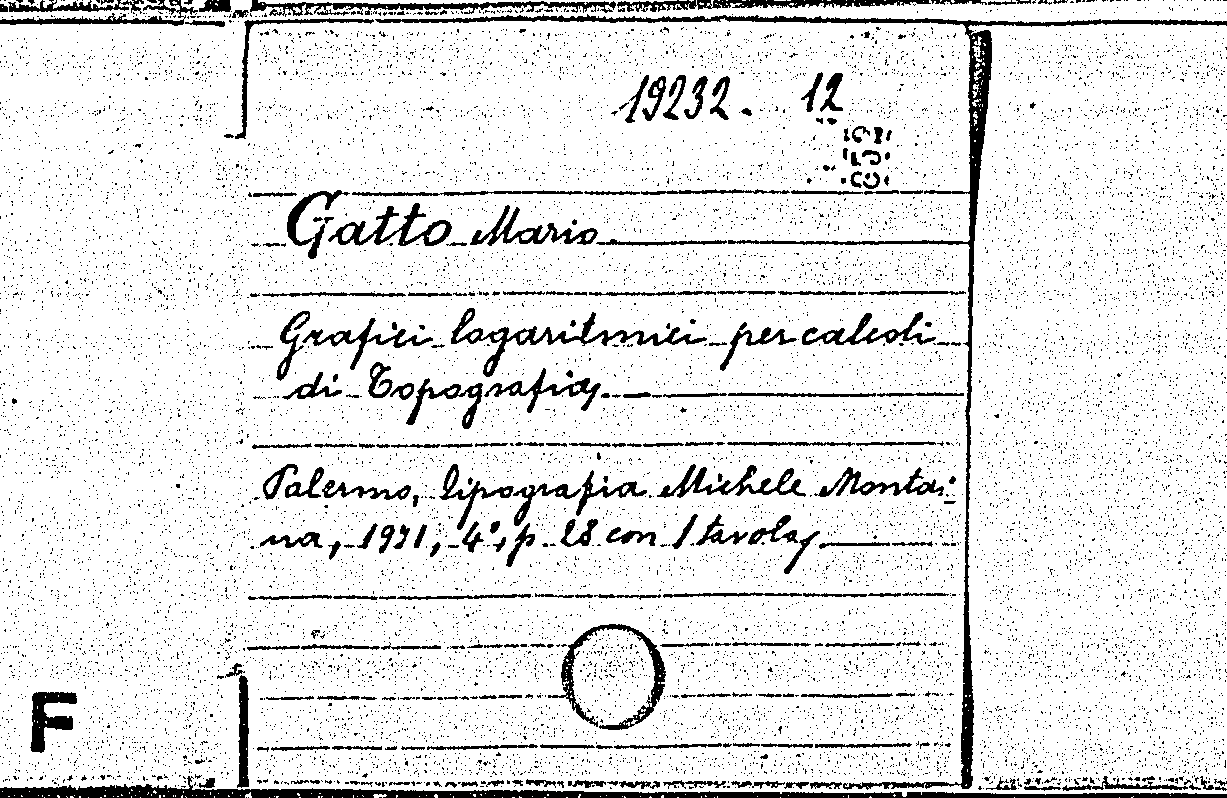 19232. 12
Gatto Mario.
Grafici logaritmici per calcoli
di Topografia.
Palermo, Tipografia Michele Montai-
na, 1931, 4°, p. 28 con 1 tavola.
F